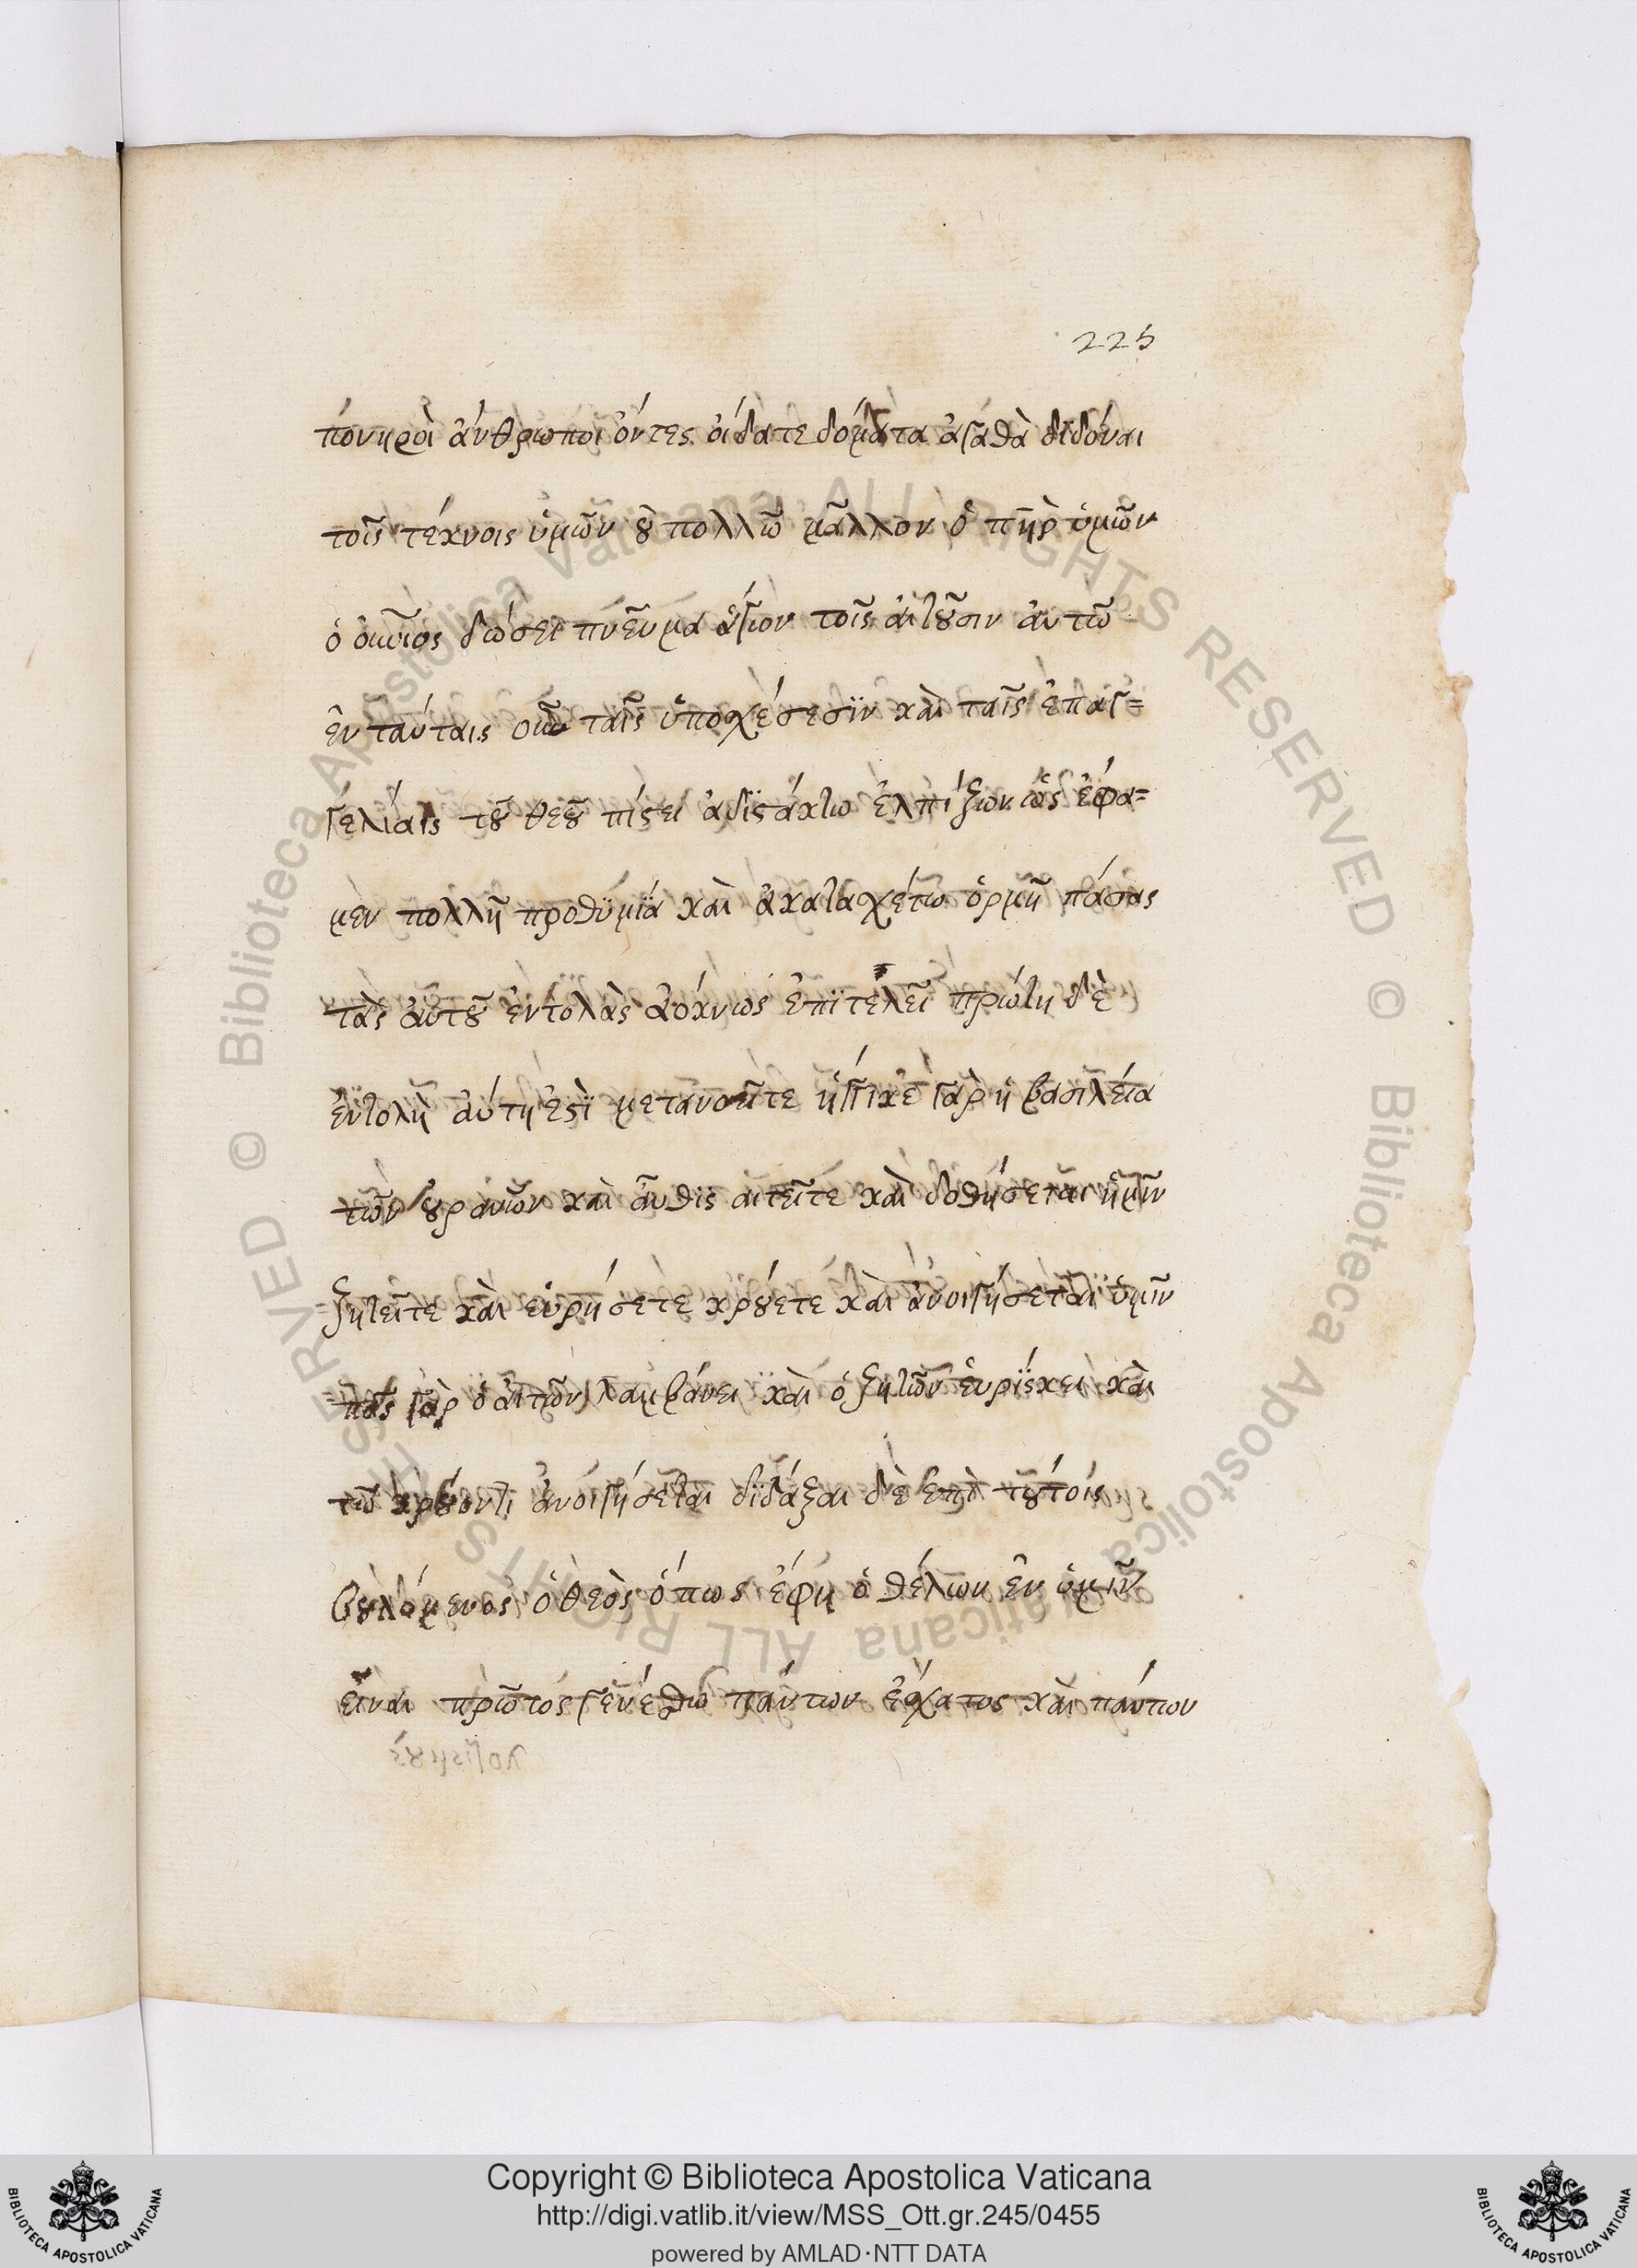 225
πονηροὶ ἄνθρωποι ὄντες οἴδατε δόματα ἀγαθὰ διδόναι
τοῖς τέκνοις ὑμῶν οὐ πολλῶ μᾶλλον ὁ πηρ ὑμῶν
ὁ οὐνιος δώσει πνεῦμα ἅγιον τοῖς αἰτοῦσιν αὐτῶ
ἐν ταύταις οὖν ταῖς ὑποσχέσεσϊν καὶ ταῖς ἐπαγ=
γελίαις τοῦ θεοῦ πίστει ἀδϊστάκτω ἐλπίζων ὡς ἔφα=
μεν πολλῆ προθϋμϊα καὶ ἀκατασχέτω ὁρμῆ πάσας
τὰς αὐτοῦ ἐντολὰς ἀόκνως ἐπϊτελεῖ πρώτη δὲ
ἐντολὴ αὕτη ἐστϊ μετανοεῖτε ἤγγικε γὰρ ἡ βασιλεία
τῶν οὐρανῶν καὶ αὖθϊς αἰτεῖτε καὶ δοθήσεται ἡμῖν
ζητεῖτε καὶ εὑρήσετε κρούετε καὶ ἀνοιγήσεται ὑμῖν
πᾶς γὰρ ὁ αἰτῶν λαμβάνει καὶ ὁ ζητῶν εὑρϊσκει καὶ
τῶ κρούοντι ἀνοιγήσεται δϊδάξαι δὲ ἐπὶ τούτοις
βουλόμενος ὁ θεὸς ὅπως ἔφη ὁ θέλων ἐν ὑμῖν
εἶναι πρῶτος γενέσθω πάντων ἔσχατος καὶ πάντων
Copyright © Biblioteca Apostolica Vaticana
http://digi.vatlib.it/view/MSS_Ott.gr.245/0455
powered by AMLAD·NTT DATA
BIBLIOTECA APOSTOLICA VATICANA
BIBLIOTECA APOSTOLICA VATICANA
© Biblioteca Apostolica Vaticana ALL RIGHTS RESERVED © Biblioteca Apostolica Vaticana ALL RIGHTS RESERVED